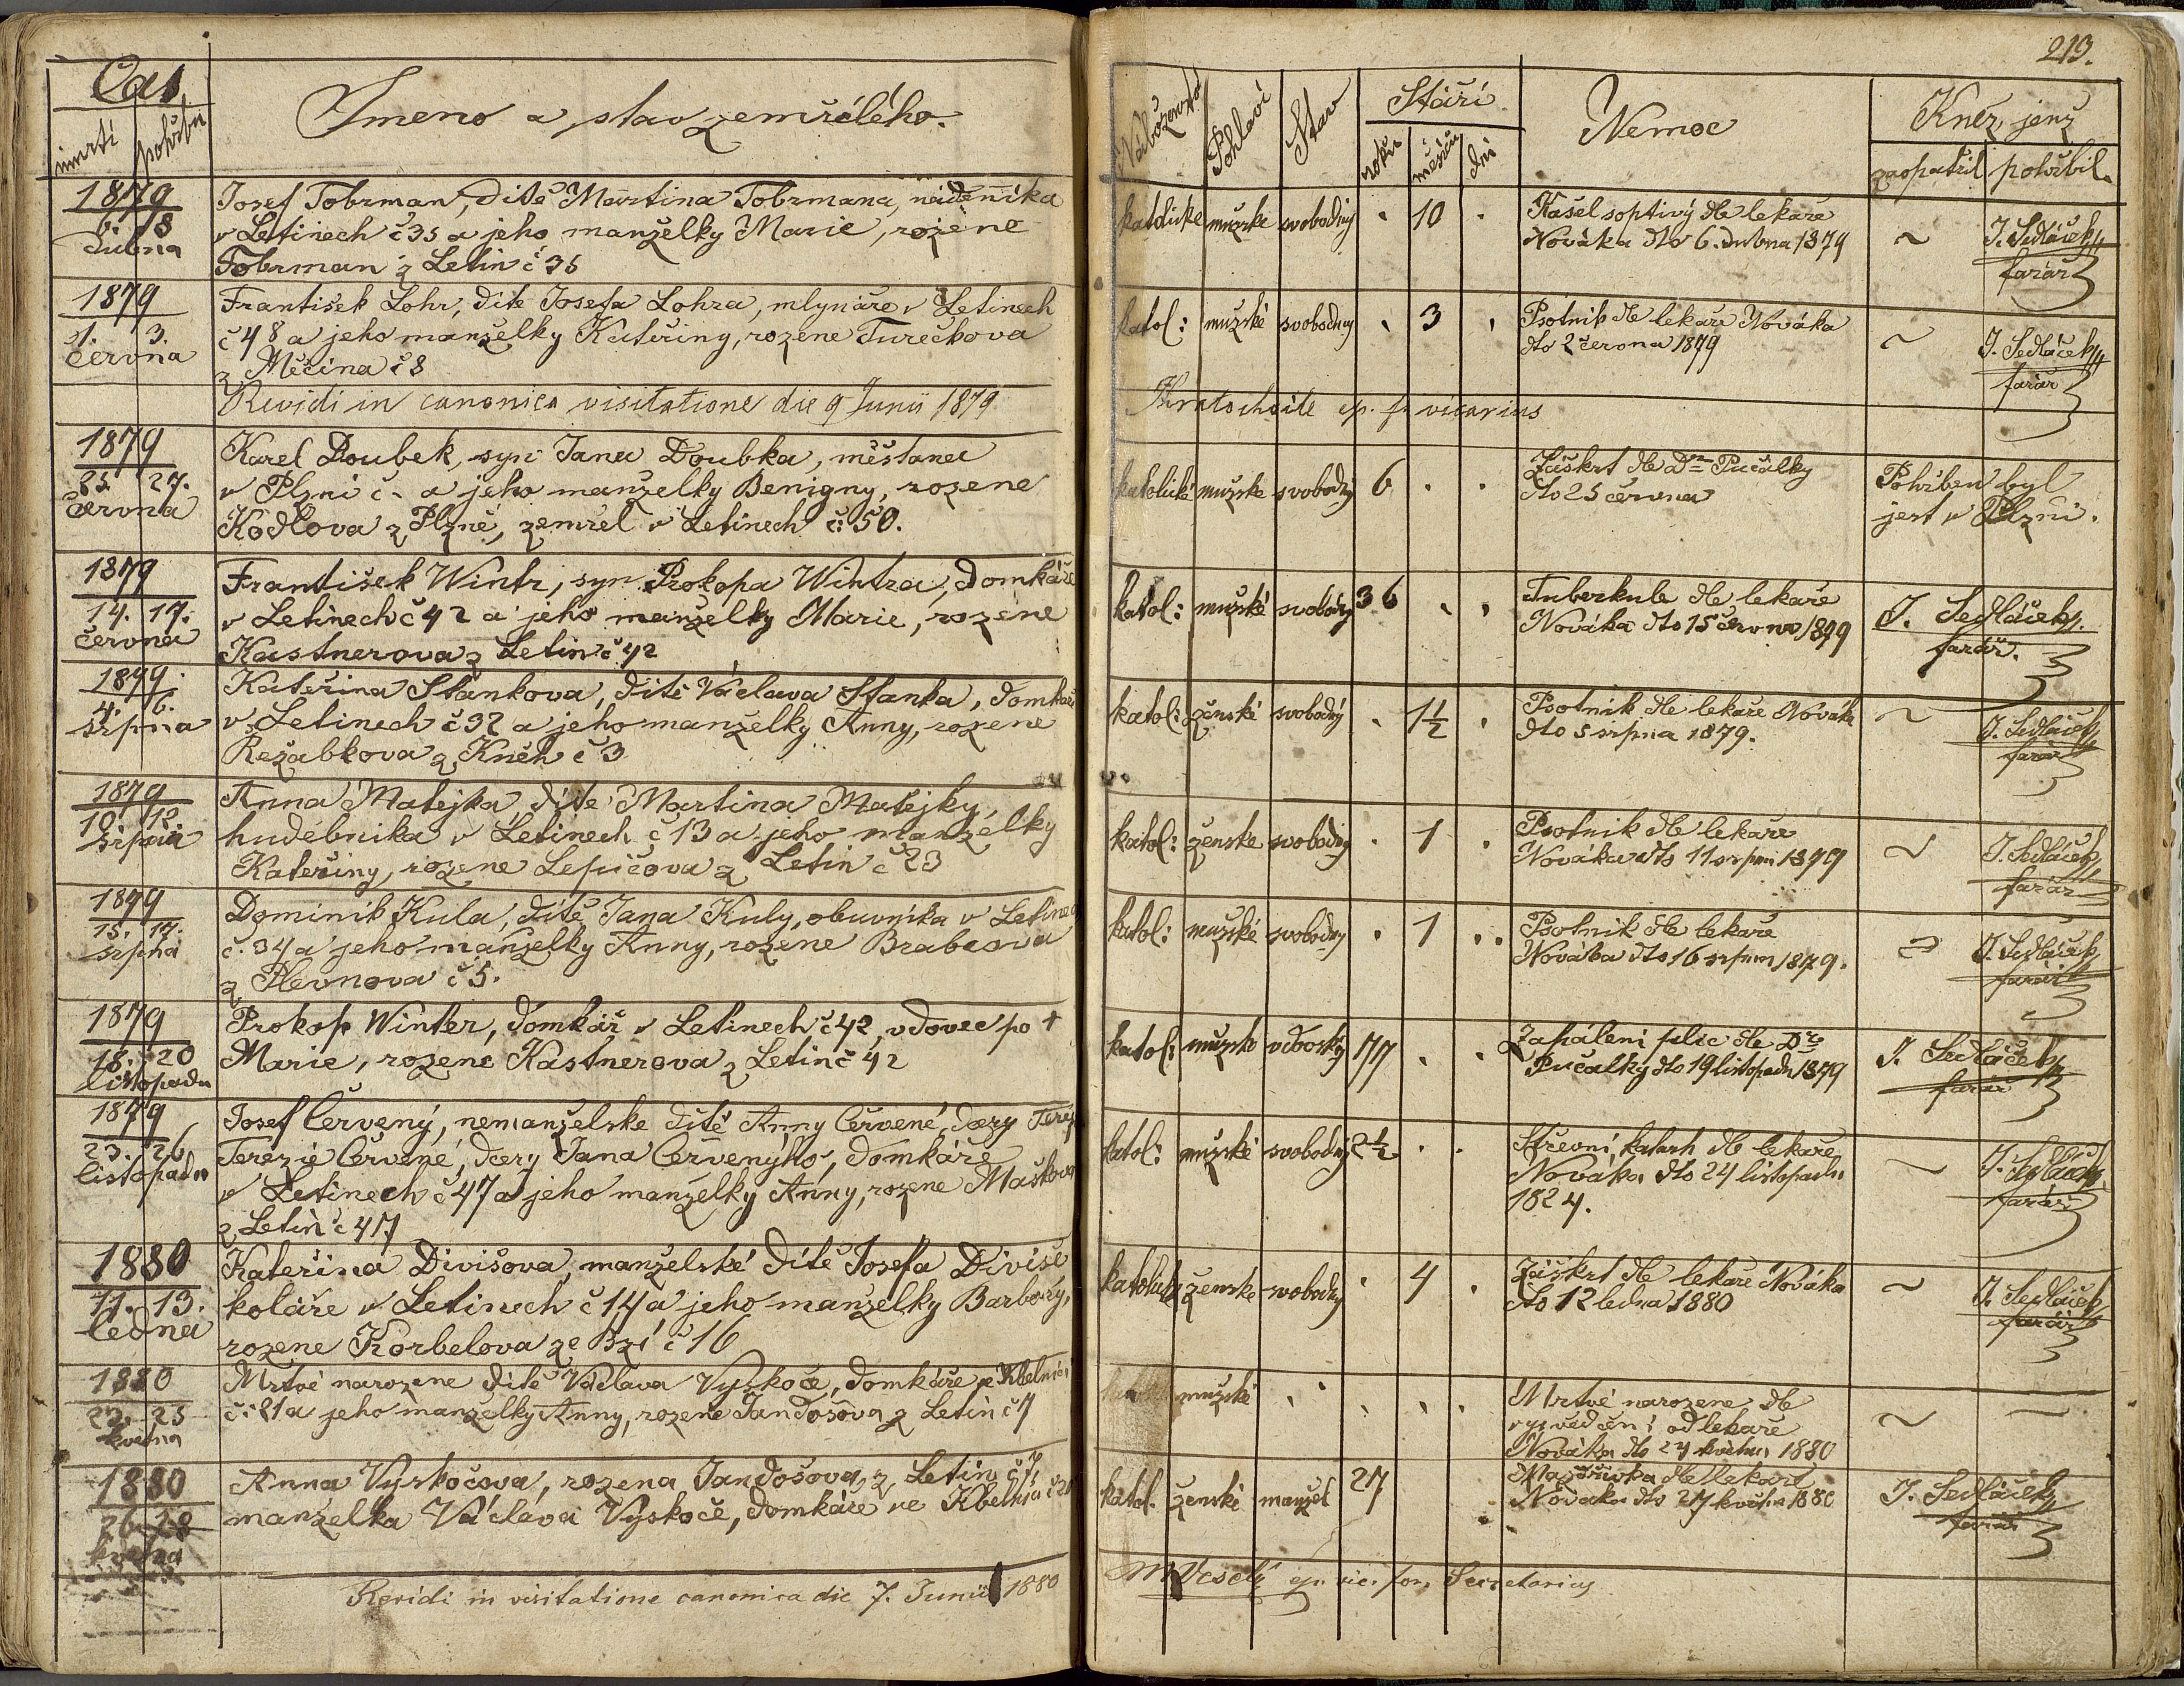 213.
Čas
úmrtí pohřbu
Jmeno a stav zemřélého.
Náboženství
Pohlaví
Stav
Stáří
roků
měsíců
dní
Nemoc
Kněz jenž
zaopatřil pohřbil.
1879
6. 8
dubna
Josef Tobrman, dítě Martina Tobrmana, nádeníka
v Letinech č 35 a jeho manželky Marie, rozené
Tobrman z Letin č 35
katolicke mužske svobodny . 10 .
Kašel soptivý dle lekaře
Nováka dto 6. dubna 1879
~
J. Sedláček
farář
1879
1. 3.
června
František Lohr, dite Josefa Lohra, mlynáře v Letinech
č 48 a jeho manželky Kateřiny, rozene Turečkova
z Měčina č 8
katol: mužské svobodny . 3 .
Psotnik dle lekaře Nováka
dto 2 června 1879
~
J. Sedláček
farář
Revidi in canonica visitatione die 9 Junii 1879
Kratochvile ep. f. vicarius
1879
25. 27.
června
Karel Doubek, syn Jana Doubka, měšťana
v Plzni č - a jeho manželky Benigny, rozene
Kodlova z Plzně, zemřel v Letinech č: 50.
katolické mužske svobodny 6 . .
Záškrt dle Dra Pučálky
dto 25 června
Pohřben byl
jest v Plzni.
1879
14. 17.
června
František Wintr, syn Prokopa Wintra, domkáře
v Letinech č 42 a jeho manželky Marie, rozene
Kastnerova z Letin č 42
katol: mužské svobodny 36 . .
Tuberkule dle lekaře
Nováka dto 15 června 1879
J. Sedláček
farář.
1879.
4. 6.
srpna
Kateřina Stankova, dítě Václava Stanka, domkáře
v Letinech č 32 a jeho manželky Anny, rozene
Režabkova z Kněh č 3
katol: ženské svobodný . 1½ .
Psotnik dle lekaře Nováka
dto 5 srpna 1879.
~
J. Sedláček
farář
1879
10. 12.
srpna
Anna Matejka, dite Martina Matějky,
hudebnika v Letinech č 13 a jeho manželky
Kateřiny, rozene Lepičova z Letin č 23
katol: ženske svobodny . 1 .
Psotnik dle lekaře
Nováka dto 11 srpna 1879
~
J. Sedláček
farář
1879
15. 17.
srpna
Dominik Kula, dítě Jana Kuly, obuvníka v Letinech
č. 34 a jeho manželky Anny, rozene Brabcova
z Plevnova č 5.
katol: mužské svobodny . 1 . .
Psotnik dle lekaře
Nováka dto 16 srpna 1879.
~
J. Sedláček
farář
1879
18. 20
listopadu
Prokop Winter, domkář v Letinech č 42, vdovec po +
Marie, rozene Kastnerova z Letin č 42
katol: mužske vdovský 77 . .
Zapáleni plic dle Dra
Pučalky dto 19 listopadu 1879
J. Sedláček
farář
1879
23. 26
listopadu
Josef Červený, nemanželske dítě Anny Červené, dcery Terez
Terezie Červené, dcery Jana Červenýho, domkáře
v Letinech č 47 a jeho manželky Anny, rozene Maškova
z Letin č 47
katol: mužské svobodný 2½ . .
Střevní katarh dle lekaře
Nováka dto 24 listopadu
1824.
~
J. Sedláček
farář
1880
11. 13.
ledna
Kateřina Divišova, manželské dítě Josefa Diviše
koláře v Letinech č 14 a jeho manželky Barbory,
rozene Korbelova ze Bzí č 16
katolicke ženske svobodny . 4 .
Záškrt dle lekaře Nováka
dto 12 ledna 1880
~
J. Sedláček
farář
1880
23. 25
května
Mrtvé narozene dítě Václava Vyskoče, domkáře ve Kbelnici
č: 21 a jeho manželky Anny, rozene Jandošova z Letin č 7
mužské . . . . .
Mrtvé narozene dle
vysvědčení od lekaře
Nováka dto 24 května 1880
~
1880
26 28
května
Anna Vyskočova, rozena Jandošova z Letin č 7,
manželka Václava Vyskoče, domkáře ve Kbelnici č 21
katol. ženské manžel 27
dle lekaře
Nováka dto 27 května 1880
J. Sedláček
farář
Revidi in visitatione canonica die 7. Junii 1880
M Veselý ep. vic. for. Secretarius